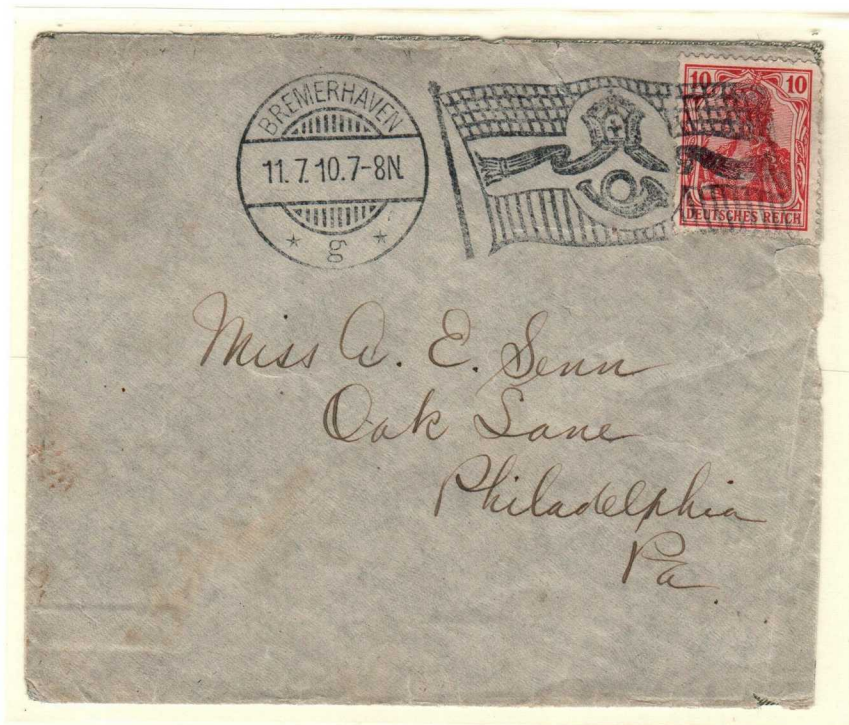 BREMERHAVEN
11.7.10.7-8N.
* bg *
10 10
DEUTSCHES REICH
Miss A. E. Senn
Oak Lane
Philadelphia
Pa.